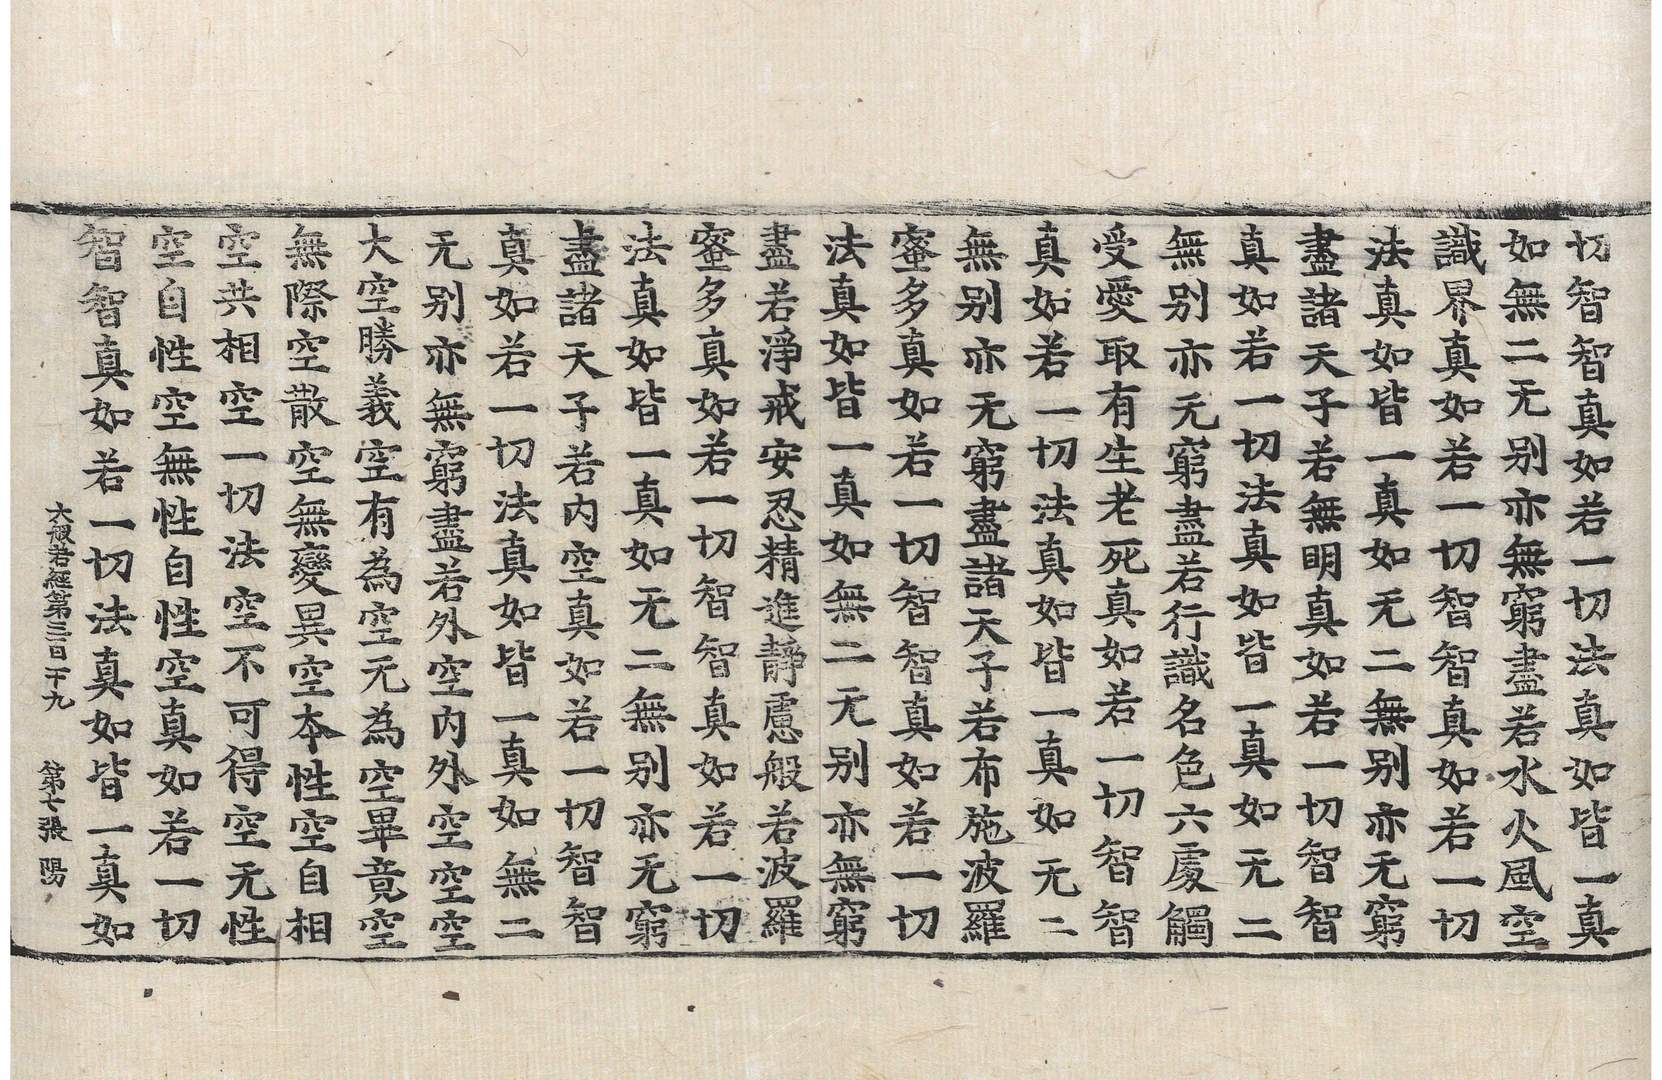 切智智真如若一切法真如皆一真
如無二无别亦無窮盡若水火風空
識界真如若一切智智真如若一切
法真如皆一真如无二無别亦无窮
盡諸天子若無明真如若一切智智
真如若一切法真如皆一真如无二
無别亦无窮盡若行識名色六處觸
受愛取有生老死真如若一切智智
真如若一切法真如皆一真如无二
無别亦无窮盡諸天子若布施波羅
蜜多真如若一切智智真如若一切
法真如皆一真如無二无别亦無窮
盡若淨戒安忍精進靜慮般若波羅
蜜多真如若一切智智真如若一切
法真如皆一真如无二無别亦无窮
盡諸天子若内空真如若一切智智
真如若一切法真如皆一真如無二
无别亦無窮盡若外空内外空空空
大空勝義空有為空无為空畢竟空
無際空散空無變異空本性空自相
空共相空一切法空不可得空无性
空自性空無性自性空真如若一切
智智真如若一切法真如皆一真如
大般若經第三百一十九 第七張 陽